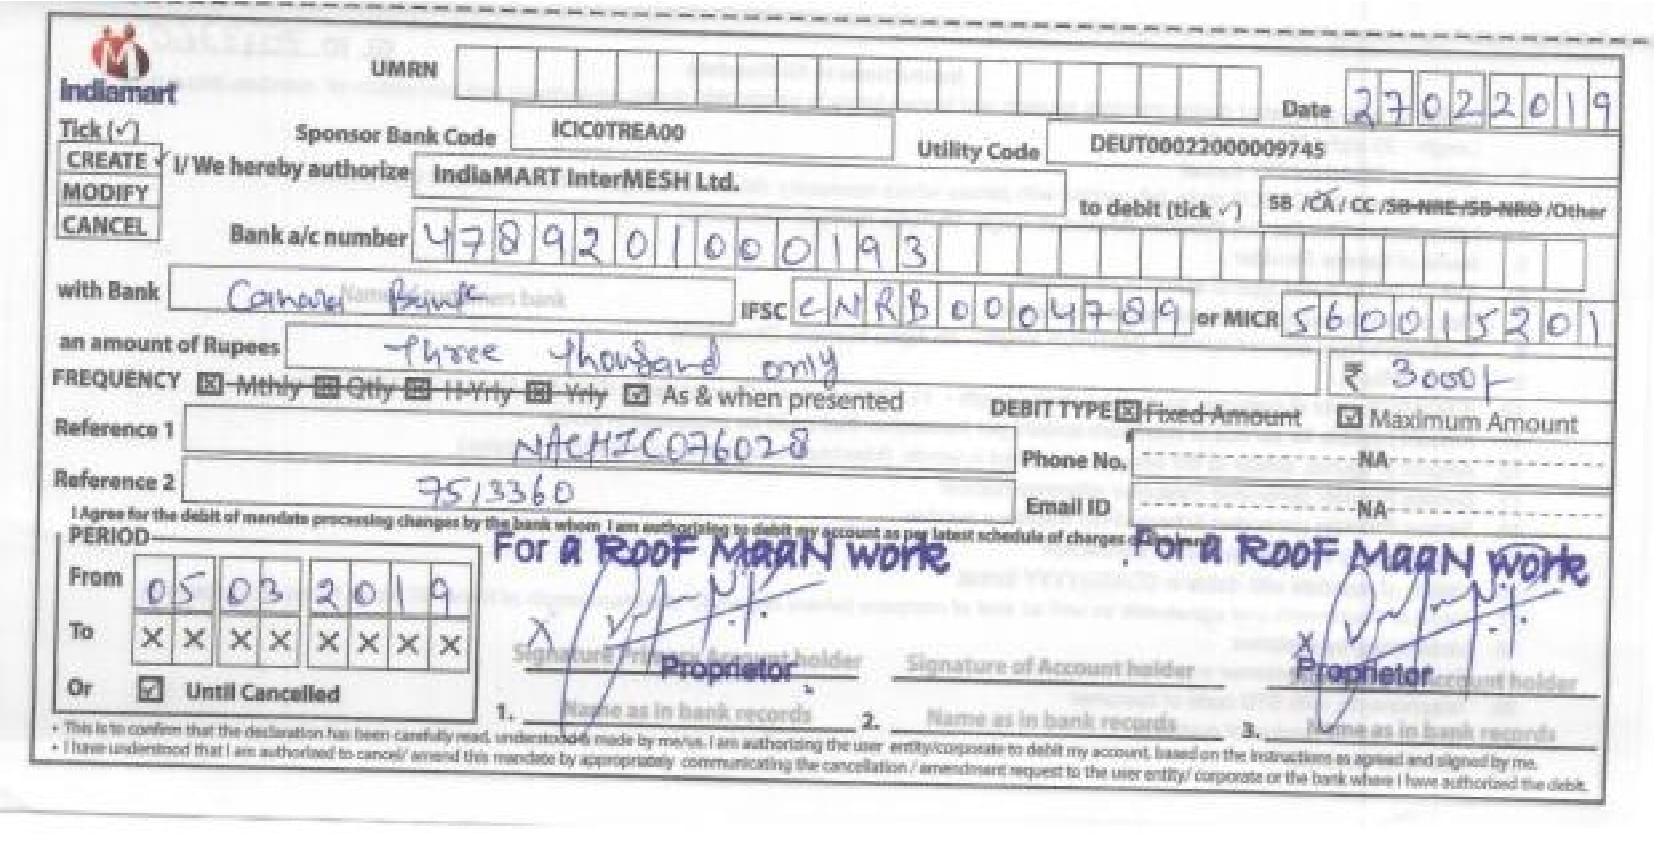 indiamart
UMRN
Date 27022019
Tick (✓)
Sponsor Bank Code ICIC0TREA00 Utility Code DEUT00022000009745
CREATE ✓ I/ We hereby authorize IndiaMART InterMESH Ltd. to debit (tick ✓) SB /CA / CC /SB-NRE /SB-NRO /Other
MODIFY
CANCEL
Bank a/c number 4789201000193
with Bank Canara Bank IFSC CNRB0004789 or MICR 560015201
an amount of Rupees Three thousand only ₹ 3000/-
FREQUENCY Mthly Qtly H-Yrly Yrly As & when presented DEBIT TYPE Fixed Amount Maximum Amount
Reference 1 NACHIC076028 Phone No. NA
Reference 2 7513360 Email ID NA
I Agree for the debit of mandate processing charges by the bank whom I am authorizing to debit my account as per latest schedule of charges
PERIOD
For a ROOF MaaN work For a ROOF MaaN work
From 05032019
To XXXXXXXX
Signature Primary Account holder Signature of Account holder Account holder
Proprietor Proprietor
Or Until Cancelled
1. Name as in bank records 2. Name as in bank records 3. Name as in bank records
• This is to confirm that the declaration has been carefully read, understood & made by me/us. I am authorizing the user entity/corporate to debit my account, based on the instructions as agreed and signed by me.
• I have understood that I am authorized to cancel/ amend this mandate by appropriately communicating the cancellation / amendment request to the user entity/ corporate or the bank where I have authorized the debit.